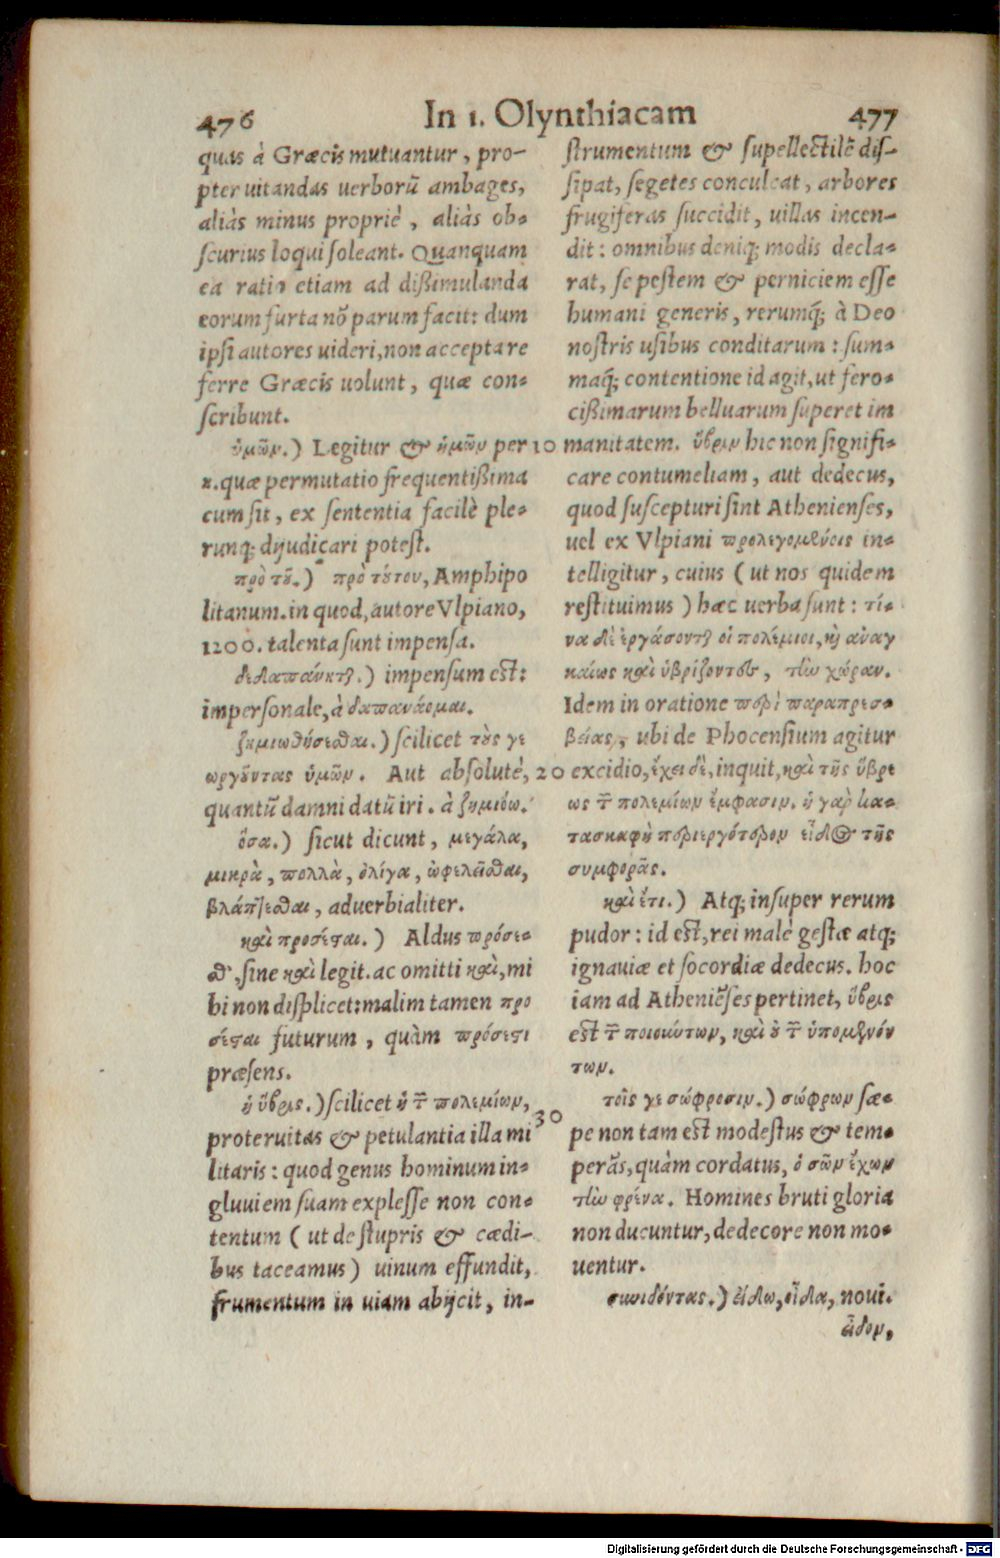 476 In 1. Olynthiacam 477
quas à Græcis mutuantur, pro-
pter uitandas uerborũ ambages,
aliàs minus propriè, aliàs ob-
scurius loqui soleant. Quanquam
ea ratio etiam ad dißimulanda
eorum furta nõ parum facit: dum
ipsi autores uideri, non acceptare
ferre Græcis uolunt, quæ con-
scribunt.
ὑμῶν.) Legitur & ἡμῶν per
η. quæ permutatio frequentißima
cum sit, ex sententia facilè ple-
runq; dijudicari potest.
πρὸ τȣ̃.) πρὸ τȣ́του, Amphipo
litanum. in quod, autore Vlpiano,
1200. talenta sunt impensa.
δεδαπάνηται.) impensum est:
impersonale, à δαπανάομαι.
ζημιωθήσεσθαι.) scilicet τȣ̀ς γε
ωργȣ̃ντας ὑμῶν. Aut absolutè,
quantũ damni datũ iri. à ζημιόω.
ὅσα.) sicut dicunt, μεγάλα,
μικρὰ, πολλὰ, ὀλίγα, ὠφελεῖσθαι,
βλάπτεσθαι, aduerbialiter.
καὶ προσέσται.) Aldus πρόσε-
στι, sine καὶ legit. ac omitti καὶ, mi
bi non displicet: malim tamen προ
σέσται futurum, quàm πρόσεστι
præsens.
ἡ ὕβρις.) scilicet ἡ τῶν πολεμίων,
proteruitas & petulantia illa mi
litaris: quod genus hominum in-
gluuiem suam explesse non con-
tentum (ut de stupris & cædi-
bus taceamus) uinum effundit,
frumentum in uiam abijcit, in-
10
20
30
strumentum & supellectilẽ dis-
sipat, segetes conculcat, arbores
frugiferas succidit, uillas incen-
dit: omnibus deniq; modis decla-
rat, se pestem & perniciem esse
humani generis, rerumq́; à Deo
nostris usibus conditarum: sum-
maq́; contentione id agit, ut fero-
cißimarum belluarum superet im
manitatem. ὕβριν hic non signifi-
care contumeliam, aut dedecus,
quod suscepturi sint Athenienses,
uel ex Vlpiani προλεγομένοις in-
telligitur, cuius (ut nos quidem
restituimus) hæc uerba sunt: τί-
να δὲ ἐργάσονται οἱ πολέμιοι, καὶ ἀναγ
καίως καὶ ὑβρίζοντες, τὴν χώραν.
Idem in oratione περὶ παραπρεσ-
βείας, ubi de Phocensium agitur
excidio, ἔχει δὲ, inquit, καὶ τῆς ὕβρε
ως τῶν πολεμίων ἔμφασιν. ἡ γὰρ κα-
τασκαφὴ περιεργότερον εἶδος τῆς
συμφορᾶς.
καὶ ἔτι.) Atq; insuper rerum
pudor: id est, rei malè gestæ atq;
ignauiæ et socordiæ dedecus. hoc
iam ad Atheniẽses pertinet, ὕβρις
est τῶν ποιούντων, καὶ ȣ̓ τῶν ὑπομενόν
των.
τοῖς γε σώφροσιν.) σώφρων sæ-
pe non tam est modestus & tem-
perãs, quàm cordatus, ὁ σῶν ἔχων
τὴν φρένα. Homines bruti gloria
non ducuntur, dedecore non mo-
uentur.
συνιδόντας.) εἴδω, οἶδα, noui.
εἶδον,
Digitalisierung gefördert durch die Deutsche Forschungsgemeinschaft - DFG